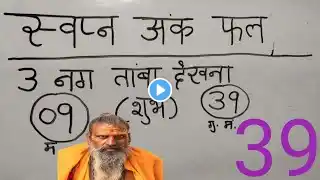 स्वप्न अंक फल
3 नग तांबा देखना
09 (शुभ) 39
म गु. म.
39